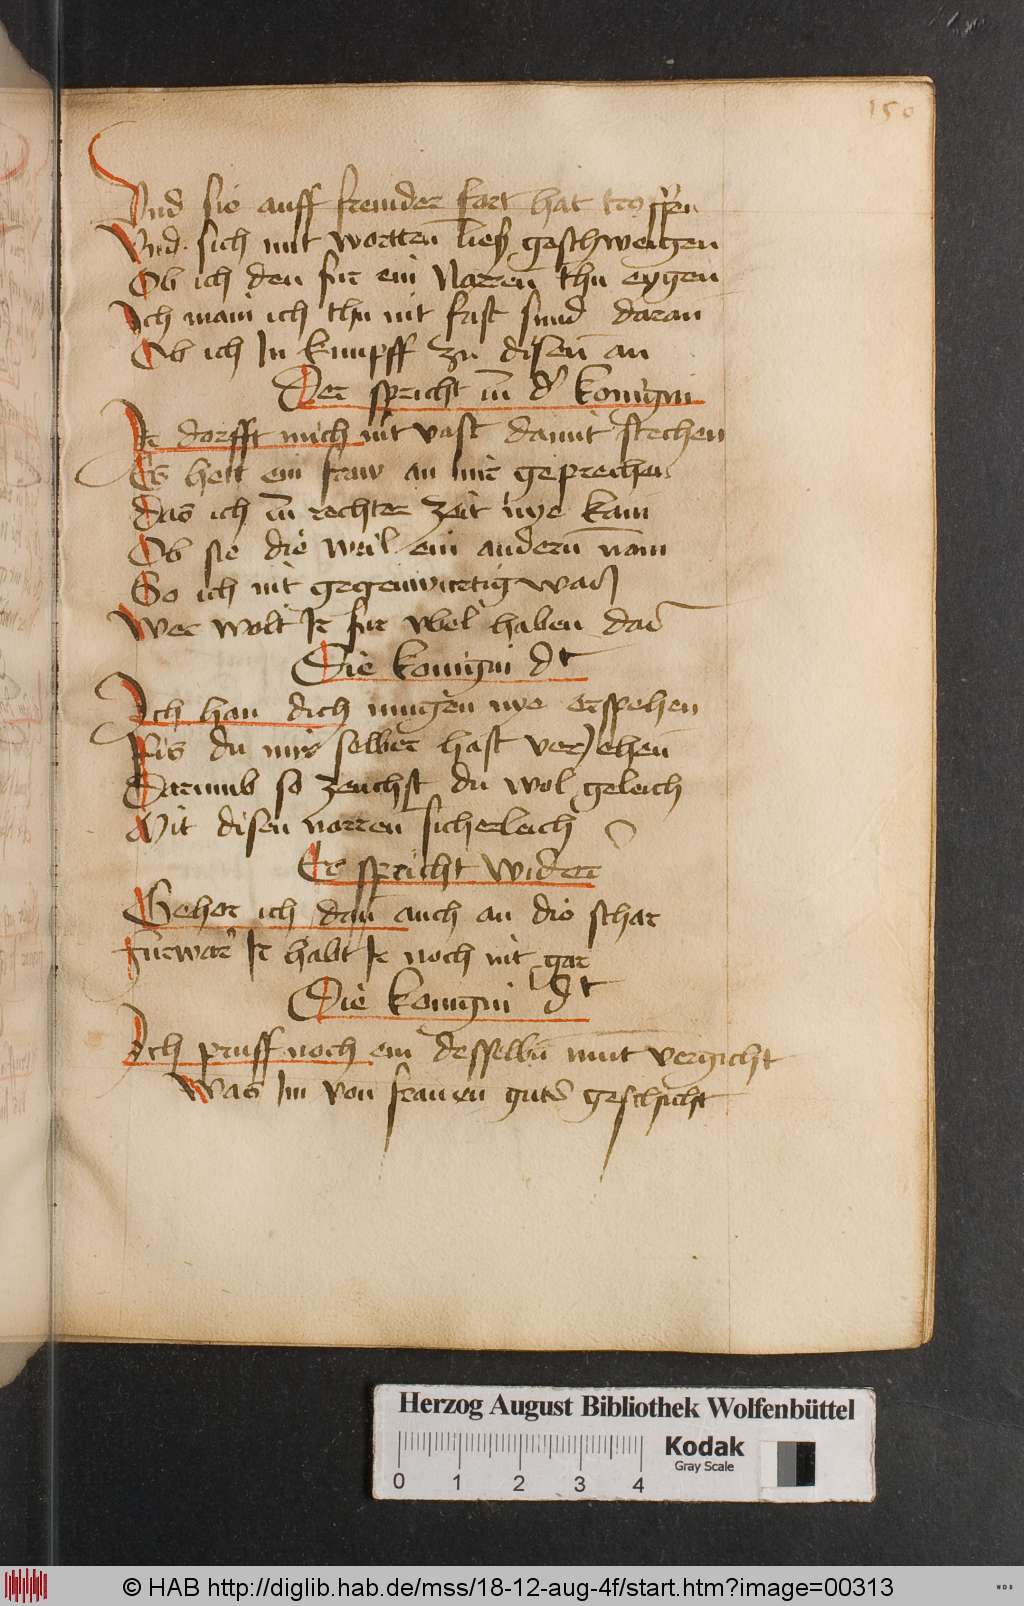 150
Vnd sie auff fremder fart hat troffen
Vnd sich mit wortten ließ geschweigen
Ob ich den fur ein Narren thu eygen
Ich main ich thu nit fast sund daran
Ob ich In knupff zu disen̄ an
Der spricht zu d' konigin
Ir dorfft mich nit vast damit stechen
Es hett ein fraw an mir geprechen
Das ich zu rechter zeit nye kam
Ob sie die weil ein andern̄ nam
So ich nit gegenwirtig waß
Wer wolt Ir fur vbel haben daß
Die konigin dt
Ich han dich mugen nye erspehen
Piß du mirs selber hast veriehen̄
Darumb so zeuchst du wol geleich
Mit disen narren sicherleich
Er spricht wider
Gehor ich dan̄ auch an die schar
Furwar Ir habt Ir noch nit gar
Die konigin dt
Ich pruff noch ein desselbn̄ mut vergicht
Was Im von frauen guts geschicht
Herzog August Bibliothek Wolfenbüttel
Kodak
Gray Scale
0 1 2 3 4
© HAB http://diglib.hab.de/mss/18-12-aug-4f/start.htm?image=00313